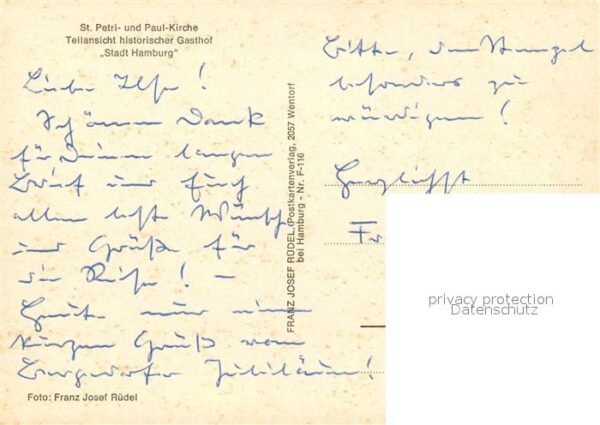 St. Petri- und Paul-Kirche
Teilansicht historischer Gasthof
„Stadt Hamburg"
Liebe Ilse!
Schönen Dank
für Deinen langen
Brief und Euch
allen beste Wünsche
und Grüße für
die Reise! –
Heute nur einen
kurzen Gruß vom
Bergedorfer Jubiläum!
Foto: Franz Josef Rüdel
FRANZ JOSEF RÜDEL, (Postkartenverlag, 2057 Wentorf
bei Hamburg - Nr. F-116
Bitte, den Stempel
besonders zu
würdigen!
Herzlichst
Fr
privacy protection
Datenschutz